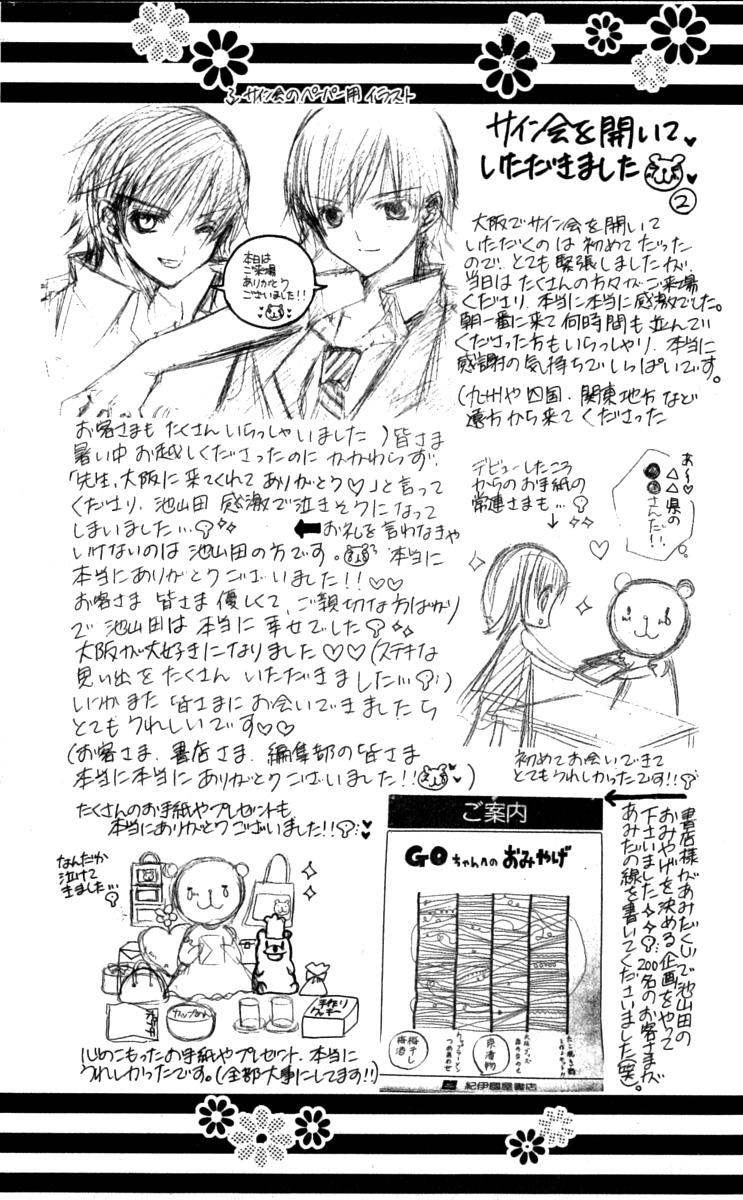 サイン会のペーパー用イラスト
サイン会を開いて
いただきました
②
本日は
ご来場
ありがとう
ございました!!
大阪でサイン会を開いて
いただくのは初めてだった
ので、とても緊張しましたが、
当日はたくさんの方々がご来場
くださり、本当に本当に感激でした。
朝一番に来て何時間も並んで
くださった方もいらっしゃり、本当に
感謝の気持ちでいっぱいです。
(九州や四国、関東地方など
遠方から来てくださった
お客さまもたくさんいらっしゃいました)皆さま
暑い中お越しくださったのにかかわらず、
「先生、大阪に来てくれてありがとう♡」と言って
くださり、池山田 感激で泣きそうになって
しまいました…
←お礼を言わなきゃ
いけないのは池山田の方です。本当に
本当にありがとうございました!!♡♡
お客さま 皆さま優しくて、ご親切な方ばかり
で 池山田は本当に幸せでした
大阪が大好きになりました♡♡(ステキな
思い出をたくさんいただきました…)
いつかまた 皆さまにお会いできましたら
とてもうれしいです♡♡
(お客さま、書店さま、編集部の皆さま
本当に本当にありがとうございました!!)
デビューしたころ
からのお手紙の
常連さまも…
↓
あ〜♡
●△
●△県の
さんだ!!
初めてお会いできて
とてもうれしかったです!!
たくさんのお手紙やプレゼントも
本当にありがとうございました!!
なんだか
泣けて
きました…
カップめん
手作り
クッキー
心のこもったお手紙やプレゼント、本当に
うれしかったです。(全部大事にしてます!!)
ご案内
GOちゃんへの おみやげ
梅干し
梅酒
京漬物
つめあわせ
紀伊國屋書店
書店様があみだくじで池山田の
おみやげを決める企画をやって
下さいました 200名のお客さまが
あみだの線を書いてくださいました(笑)。